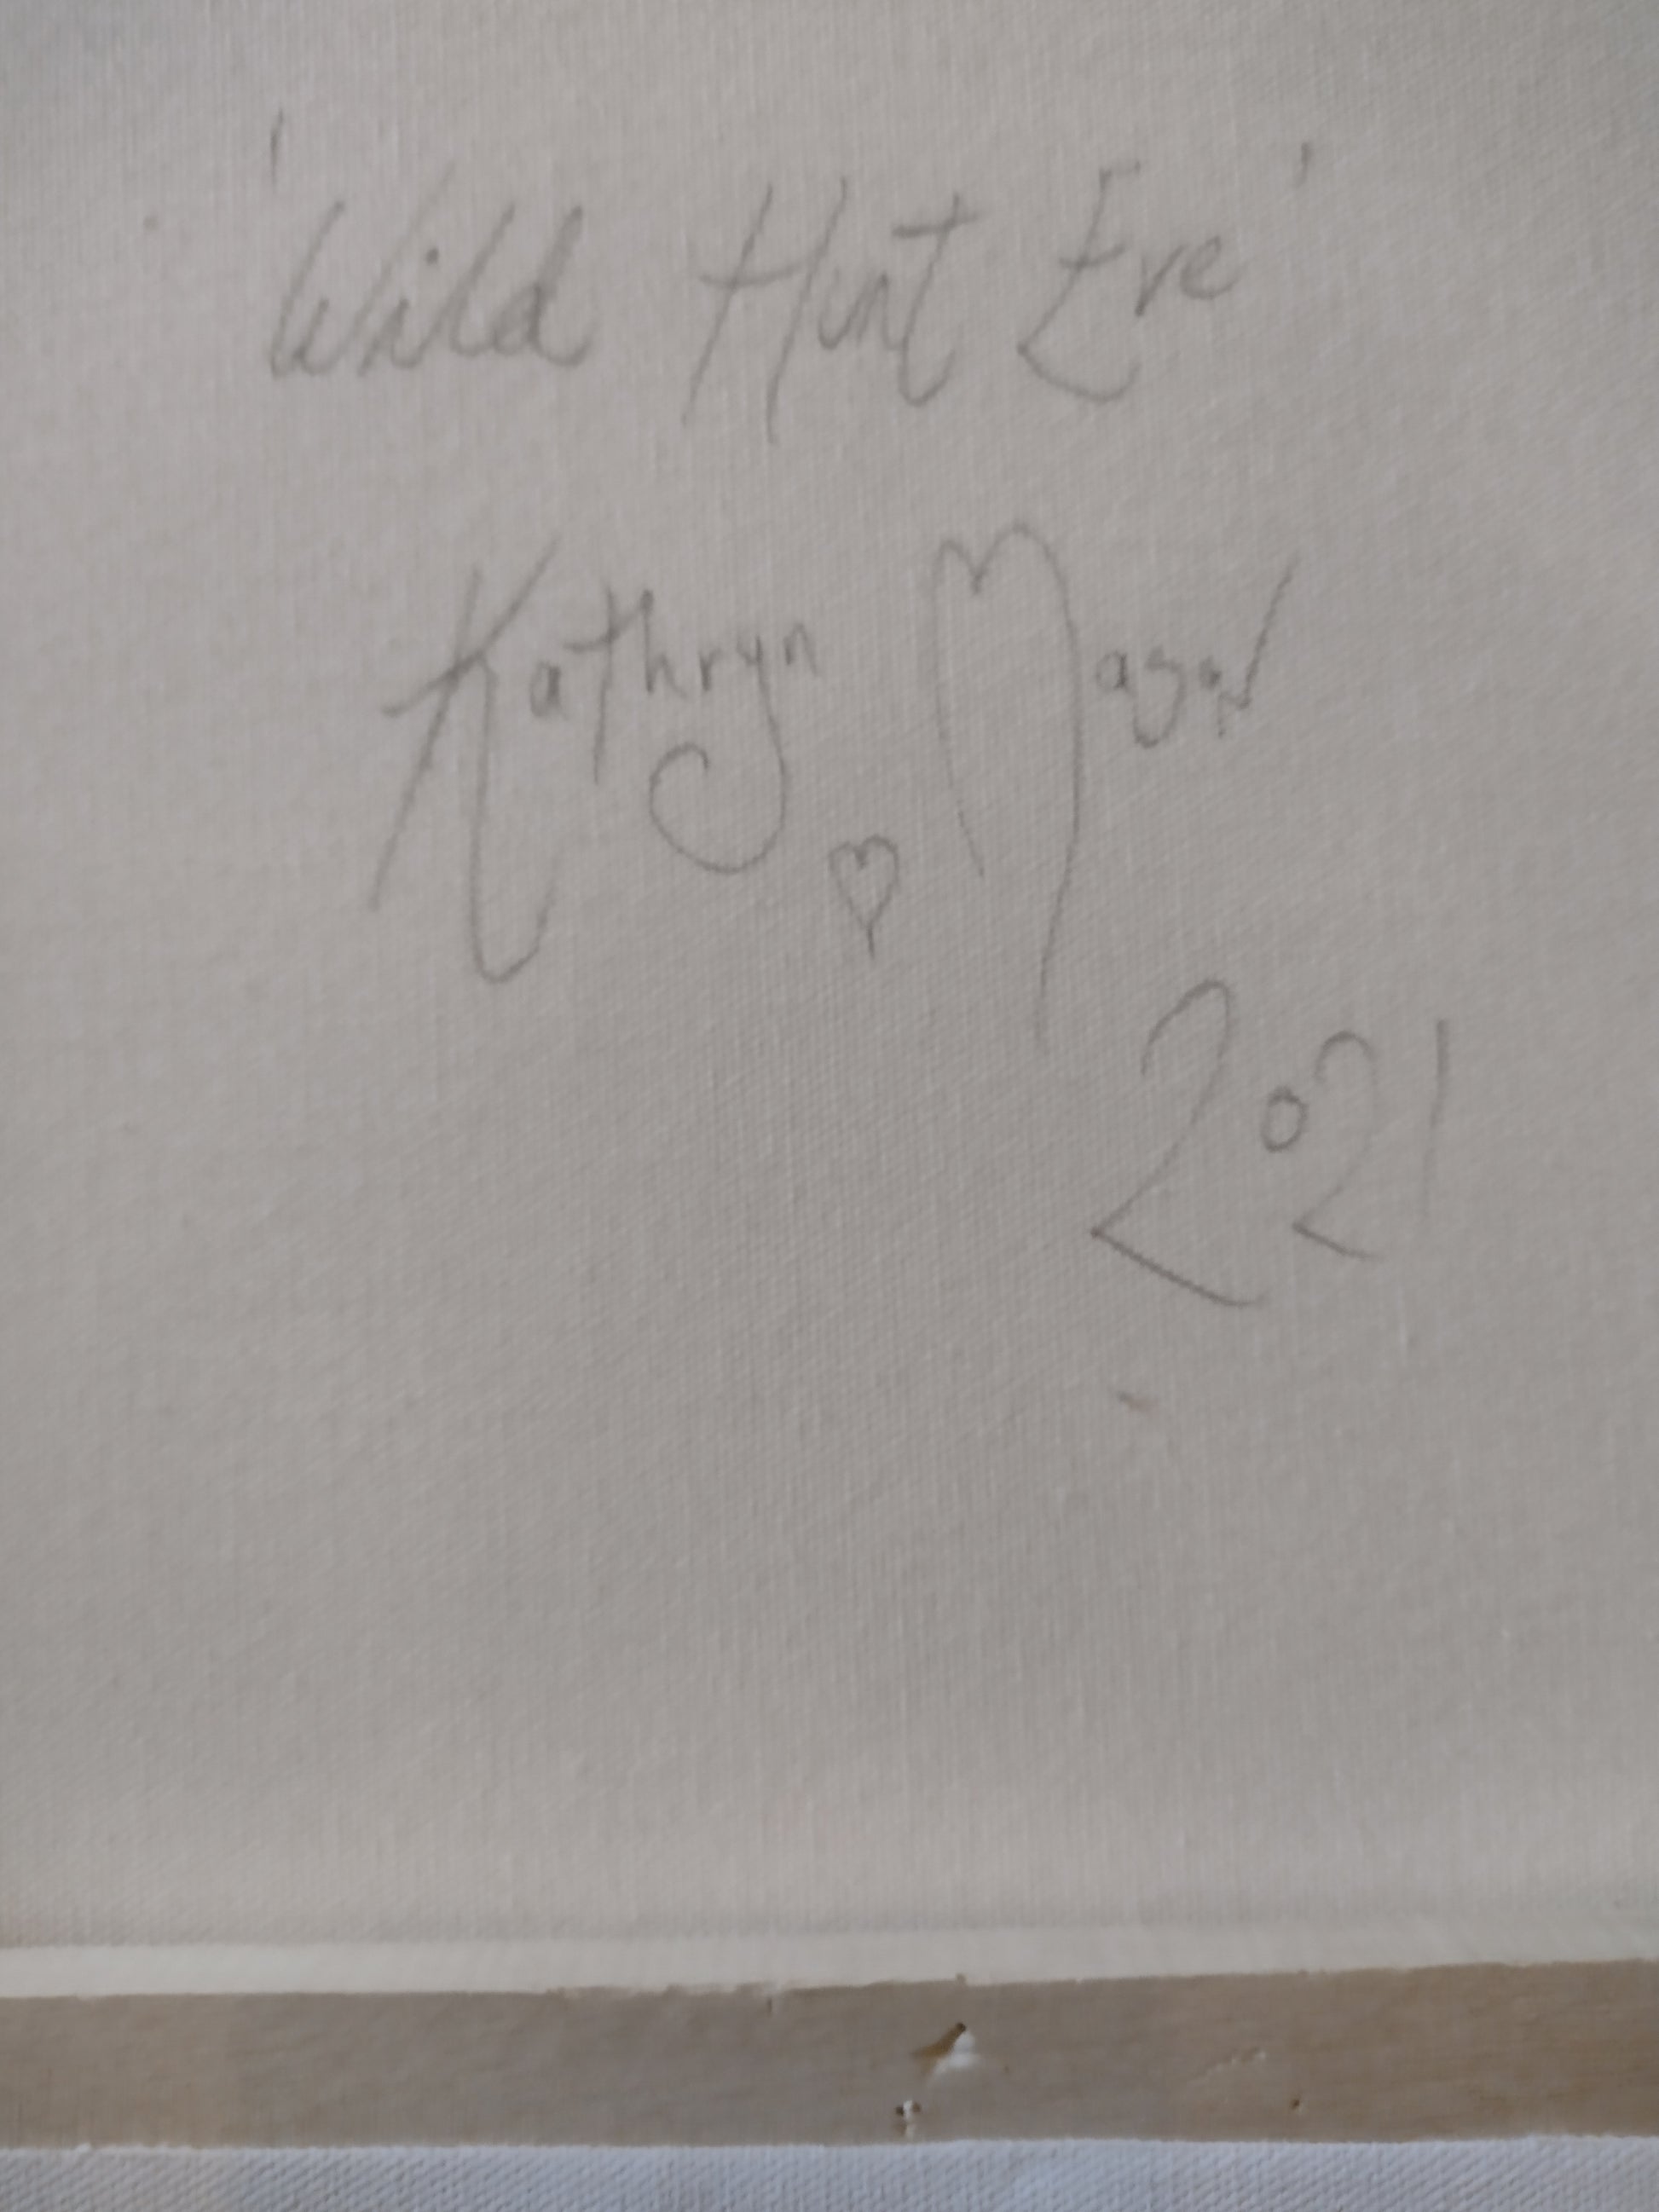 'Wild Hunt Eve'
Kathryn
♡
2021